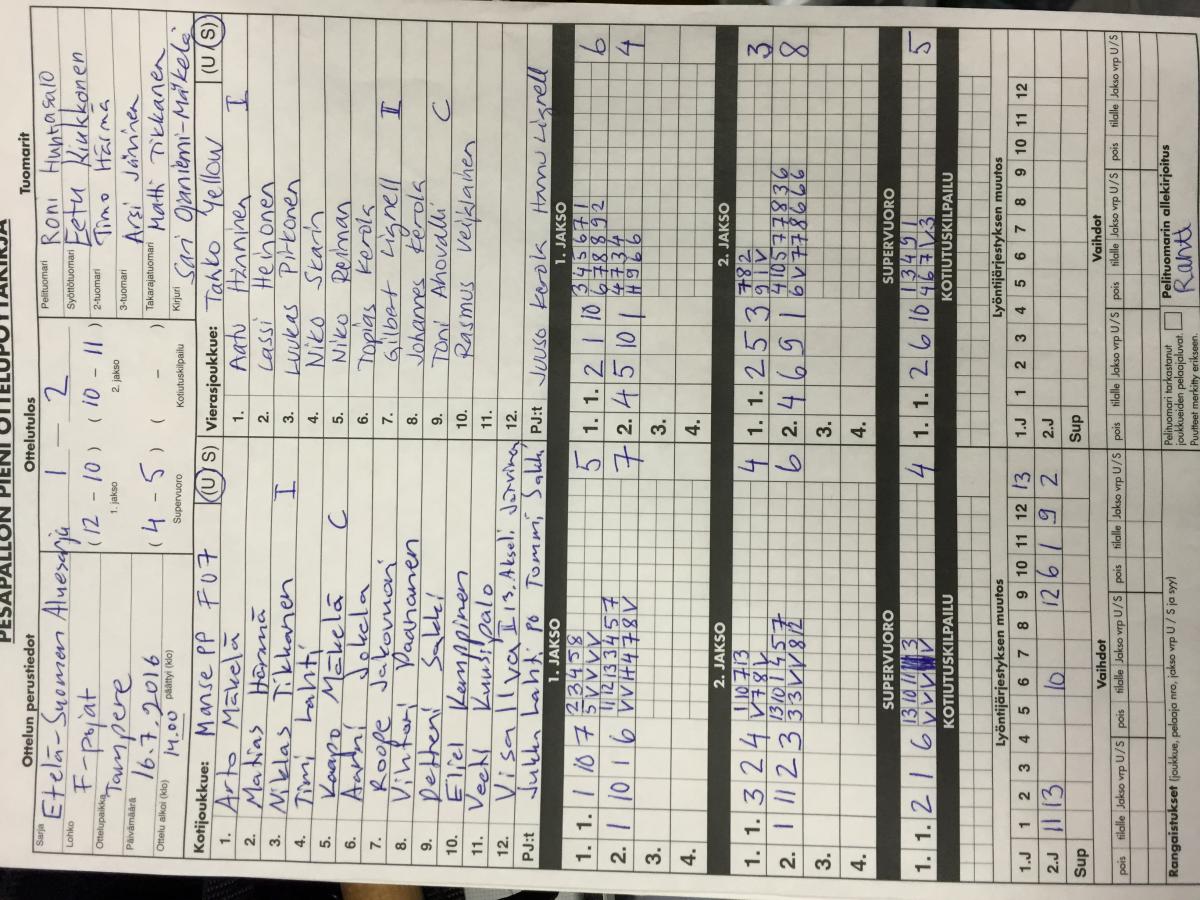 PESÄPALLON PIENI OTTELUPÖYTÄKIRJA
Ottelun perustiedot
Sarja Etelä-Suomen Aluesarja
Lohko F-pojat
Ottelupaikka Tampere
Päivämäärä 16.7.2016
Ottelu alkoi (klo) 14.00 päättyi (klo)
Ottelutulos
1 — 2
(12 - 10) (10 - 11)
1. jakso 2. jakso
(4 - 5) ( - )
Supervuoro Kotiutuskilpailu
Tuomarit
Pelituomari Roni Huntasalo
Syöttötuomari Eetu Kiukkonen
2-tuomari Timo Härmä
3-tuomari Arsi Järvinen
Takarajatuomari Matti Tikkanen
Kirjuri Sari Ojaniemi-Mäkelä
Kotijoukkue: Manse PP F07 (U S)
1. Arto Mäkelä
2. Matias Härmä
3. Niklas Tikkanen I
4. Timi Lahti
5. Kaapo Mäkelä C
6. Aarni Jokela
7. Roope Jakomäri
8. Vihtori Paananen
9. Petteri Sakki
10. Eliel Kemppinen
11. Veeti Kuusipalo
12. Visa Ilvaj II 13. Akseli Järvinen
PJ:t Jukka Lahti PO Tommi Sakki
Vierasjoukkue: Tahko Yellow (U S)
1. Aatu Hänninen I
2. Lassi Heinonen
3. Luukas Pirkonen
4. Niko Skarin
5. Niko Reiman
6. Topias Kerola
7. Gilbert Lignell II
8. Johannes Kerola
9. Toni Ahovalli C
10. Rasmus Veijalainen
11.
12.
PJ:t Juuso Kerola Hannu Lignell
1. JAKSO
1. 1. 1 10 7 2 3 4 5 8 5
5 V V V V
2. 1 10 1 6 11 12 13 3 4 5 7 7
V V H 4 7 8 V
3.
4.
1. JAKSO
1. 1. 2 1 10 3 4 5 6 7 1 6
6 7 8 8 9 2
2. 4 5 10 1 4 7 3 4 4
H 9 6 6
3.
4.
2. JAKSO
1. 1. 3 2 4 1 10 7 13 4
V 7 8 V
2. 1 11 2 3 13 10 1 4 5 7 6
3 3 V V 8 12
3.
4.
2. JAKSO
1. 1. 2 5 3 7 8 2 3
9 1 V
2. 4 6 9 1 4 10 5 7 7 8 3 6 8
6 V 7 7 8 6 6 6
3.
4.
SUPERVUORO
1. 1. 2 1 6 4
SUPERVUORO
1. 1. 2 6 10 1 3 4 9 1 5
4 6 7 V 3
KOTIUTUSKILPAILU
KOTIUTUSKILPAILU
Lyöntijärjestyksen muutos
1.J 1 2 3 4 5 6 7 8 9 10 11 12 13
2.J 11 13 10 12 6 1 9 2
Sup
Lyöntijärjestyksen muutos
1.J 1 2 3 4 5 6 7 8 9 10 11 12
2.J
Sup
Vaihdot
pois tilalle Jakso vrp U/S pois tilalle Jakso vrp U/S pois tilalle Jakso vrp U/S
Vaihdot
pois tilalle Jakso vrp U/S pois tilalle Jakso vrp U/S pois tilalle Jakso vrp U/S
Rangaistukset (joukkue, pelaaja nro, jakso vrp / U / S ja syy)
Pelituomari tarkastanut
joukkueiden pelaajaluvat.
Puutteet merkitty erikseen.
Pelituomarin allekirjoitus